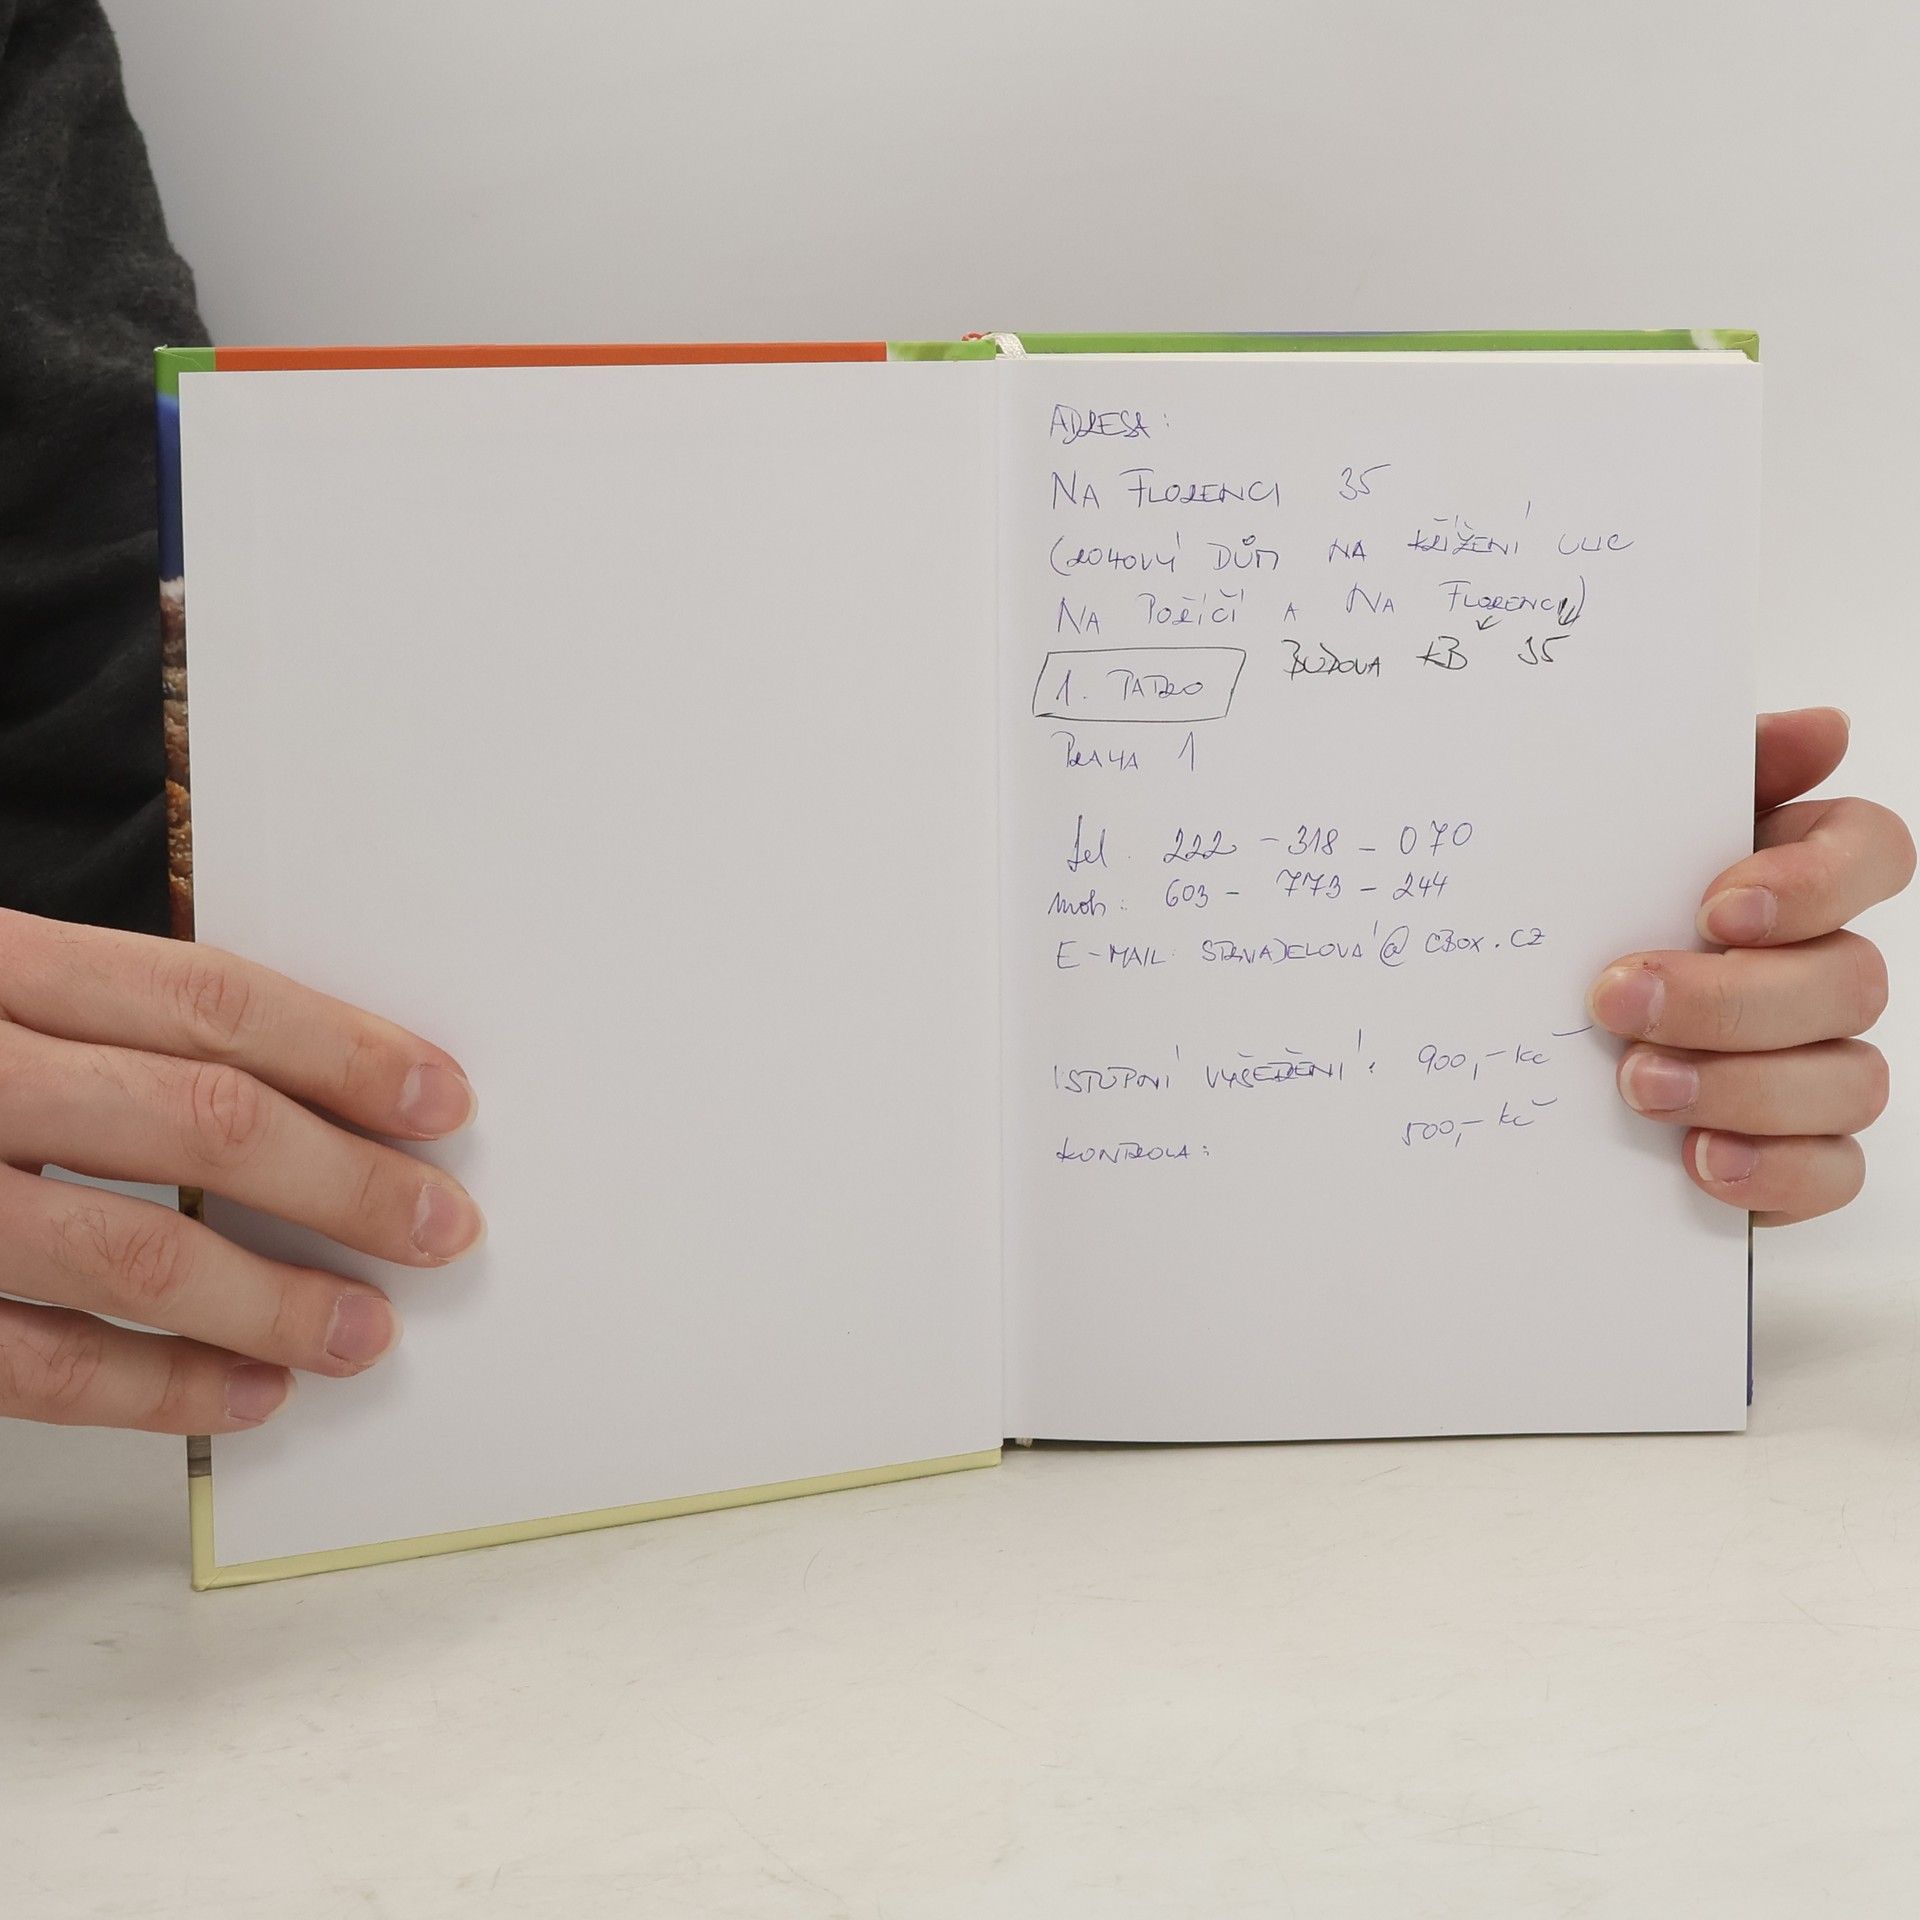 ADRESA:
NA FLORENCI 35
(ROHOVÝ DŮM NA KŘÍŽENÍ ULIC
NA POŘÍČÍ A NA FLORENCI)
1. PATRO BUDOVA KB 35
PRAHA 1
tel. 222-318-070
mob: 603-773-244
E-MAIL: STRNADELOVÁ@CBOX.CZ
VSTUPNÍ VYŠEŘENÍ: 900,-kč
KONTROLA: 500,-kč